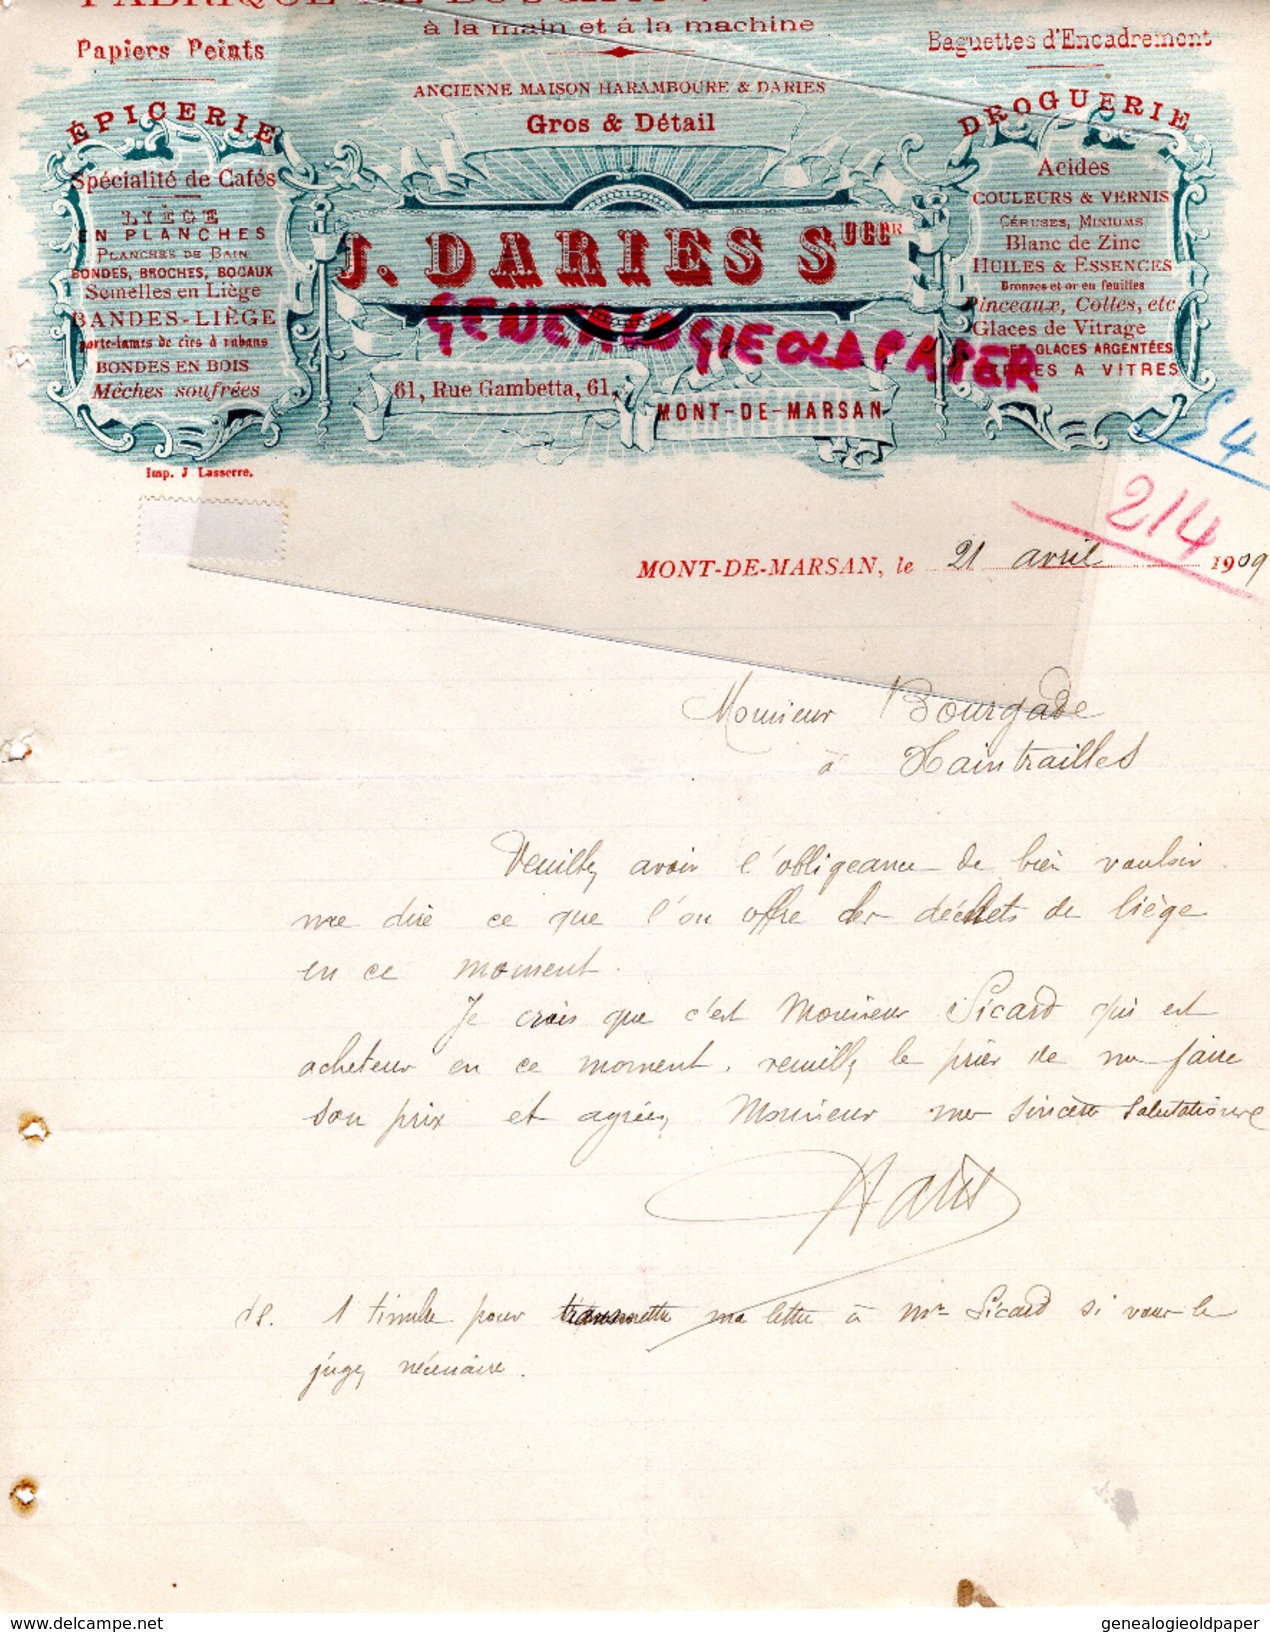 à la main et à la machine
Papiers Peints
Baguettes d'Encadrement
ANCIENNE MAISON HARAMBOURE & DARIES
Gros & Détail
ÉPICERIE
Spécialité de Cafés
LIÈGE
EN PLANCHES
PLANCHES DE BAIN
BONDES, BROCHES, BOCAUX
Semelles en Liège
BANDES-LIÈGE
porte-lames de cies à rubans
BONDES EN BOIS
Mèches soufrées
J. DARIES Succr
GENEALOGIEOLDPAPER
61, Rue Gambetta, 61,
MONT-DE-MARSAN
DROGUERIE
Acides
COULEURS & VERNIS
CÉRUSES, MINIUMS
Blanc de Zinc
HUILES & ESSENCES
Bronzes et or en feuilles
Pinceaux, Colles, etc
Glaces de Vitrage
ET GLACES ARGENTÉES
A VITRES
Imp. J Lasserre.
54
214
MONT-DE-MARSAN, le 21 avril 1909
Monsieur Bourgade
à Xaintrailles
Veuillez avoir l'obligeance de bien vouloir
me dire ce que l'on offre des déchets de liège
en ce moment.
Je crois que c'est Monsieur Sicard qui est
acheteur en ce moment, veuillez le prier de me faire
son prix et agréez, Monsieur mes sincères salutations
Daries
PS. 1 timbre pour transmettre ma lettre à Mr Sicard si vous le
jugez nécessaire.
genealogieoldpaper